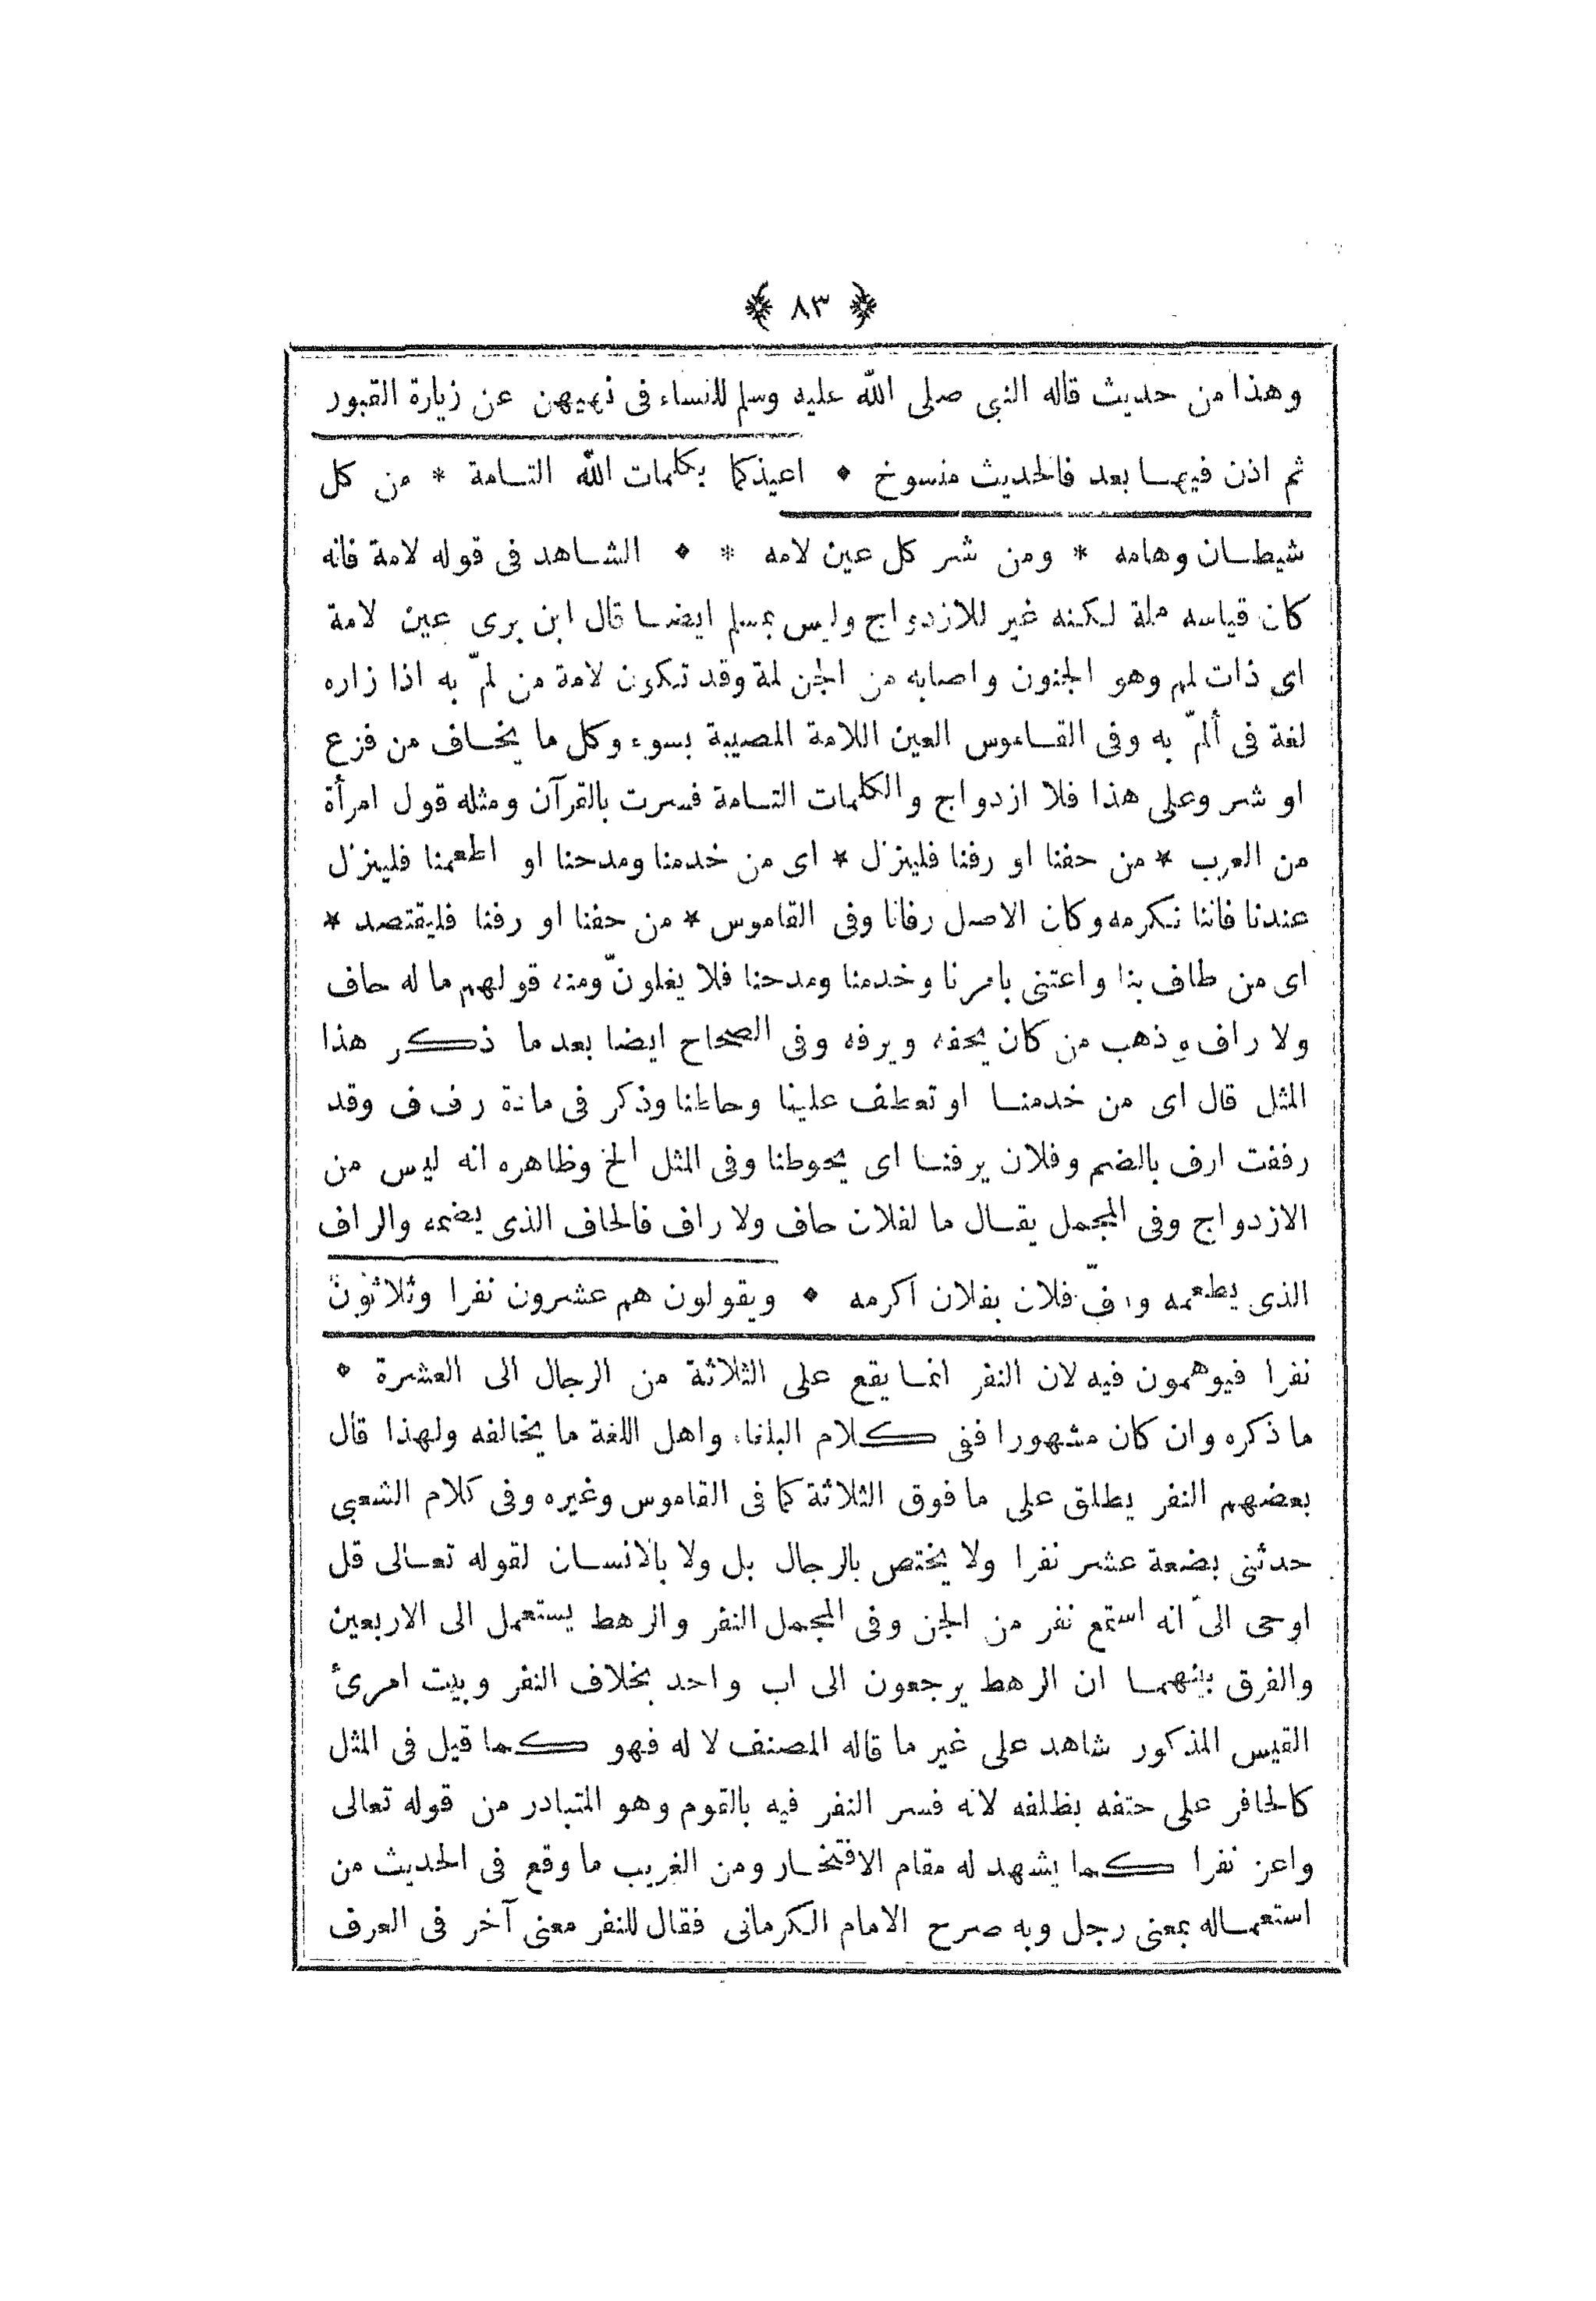 ﴿ ٨٣ ﴾
وهذا من حديث قاله النبى صلى الله عليه وسلم للنساء فى نهيهن عن زيارة القبور
ثم اذن فيهـا بعد فالحديث منسوخ * اعيذكما بكلمات الله التـامة * من كل
شيطـان وهامه * ومن شر كل عين لامه * * الشـاهد فى قوله لامة فانه
كان قياسه ملة لكنه غير للازدواج وليس بمسلم ايضـا قال ابن برى عين لامة
اى ذات لمم وهو الجنون واصابه من الجن لمة وقد تكون لامة من لمّ به اذا زاره
لغة فى ألمّ به وفى القـاموس العين اللامة المصيبة بسوء وكل ما يخـاف من فزع
او شر وعلى هذا فلا ازدواج والكلمات التـامة فسرت بالقرآن ومثله قول امرأة
من العرب * من حفنا او رفنا فلينزل * اى من خدمنا ومدحنا او اطعمنا فلينزل
عندنا فاننا نكرمه وكان الاصل رفانا وفى القاموس * من حفنا او رفنا فليقتصد *
اى من طاف بنا واعتنى بامرنا وخدمنا ومدحنا فلا يغلونّ ومنه قولهم ما له حاف
ولا راف وذهب من كان يحفه ويرفه وفى الصحاح ايضا بعد ما ذكر هذا
المثل قال اى من خدمنـا او تعطف علينا وحاطنا وذكر فى مادة ر ف ف وقد
رففت ارف بالضم وفلان يرفنـا اى يحوطنا وفى المثل الخ وظاهره انه ليس من
الازدواج وفى المجمل يقـال ما لفلان حاف ولا راف فالحاف الذى يضمه والراف
الذى يطعمه ورفّ فلان بفلان اكرمه * ويقولون هم عشرون نفرا وثلاثون
نفرا فيوهمون فيه لان النفر انمـا يقع على الثلاثة من الرجال الى العشرة *
ما ذكره وان كان مشهورا ففى كلام البلغاء واهل اللغة ما يخالفه ولهذا قال
بعضهم النفر يطلق على ما فوق الثلاثة كما فى القاموس وغيره وفى كلام الشعبى
حدثنى بضعة عشر نفرا ولا يختص بالرجال بل ولا بالانسـان لقوله تعـالى قل
اوحى الىّ انه استمع نفر من الجن وفى المجمل النفر والرهط يستعمل الى الاربعين
والفرق بينهمـا ان الرهط يرجعون الى اب واحد بخلاف النفر وبيت امرئ
القيس المذكور شاهد على غير ما قاله المصنف لا له فهو كما قيل فى المثل
كالحافر على حتفه بظلفه لانه فسر النفر فيه بالقوم وهو المتبادر من قوله تعالى
واعز نفرا كما يشهد له مقام الافتخـار ومن الغريب ما وقع فى الحديث من
استعمـاله بمعنى رجل وبه صرح الامام الكرمانى فقال للنفر معنى آخر فى العرف